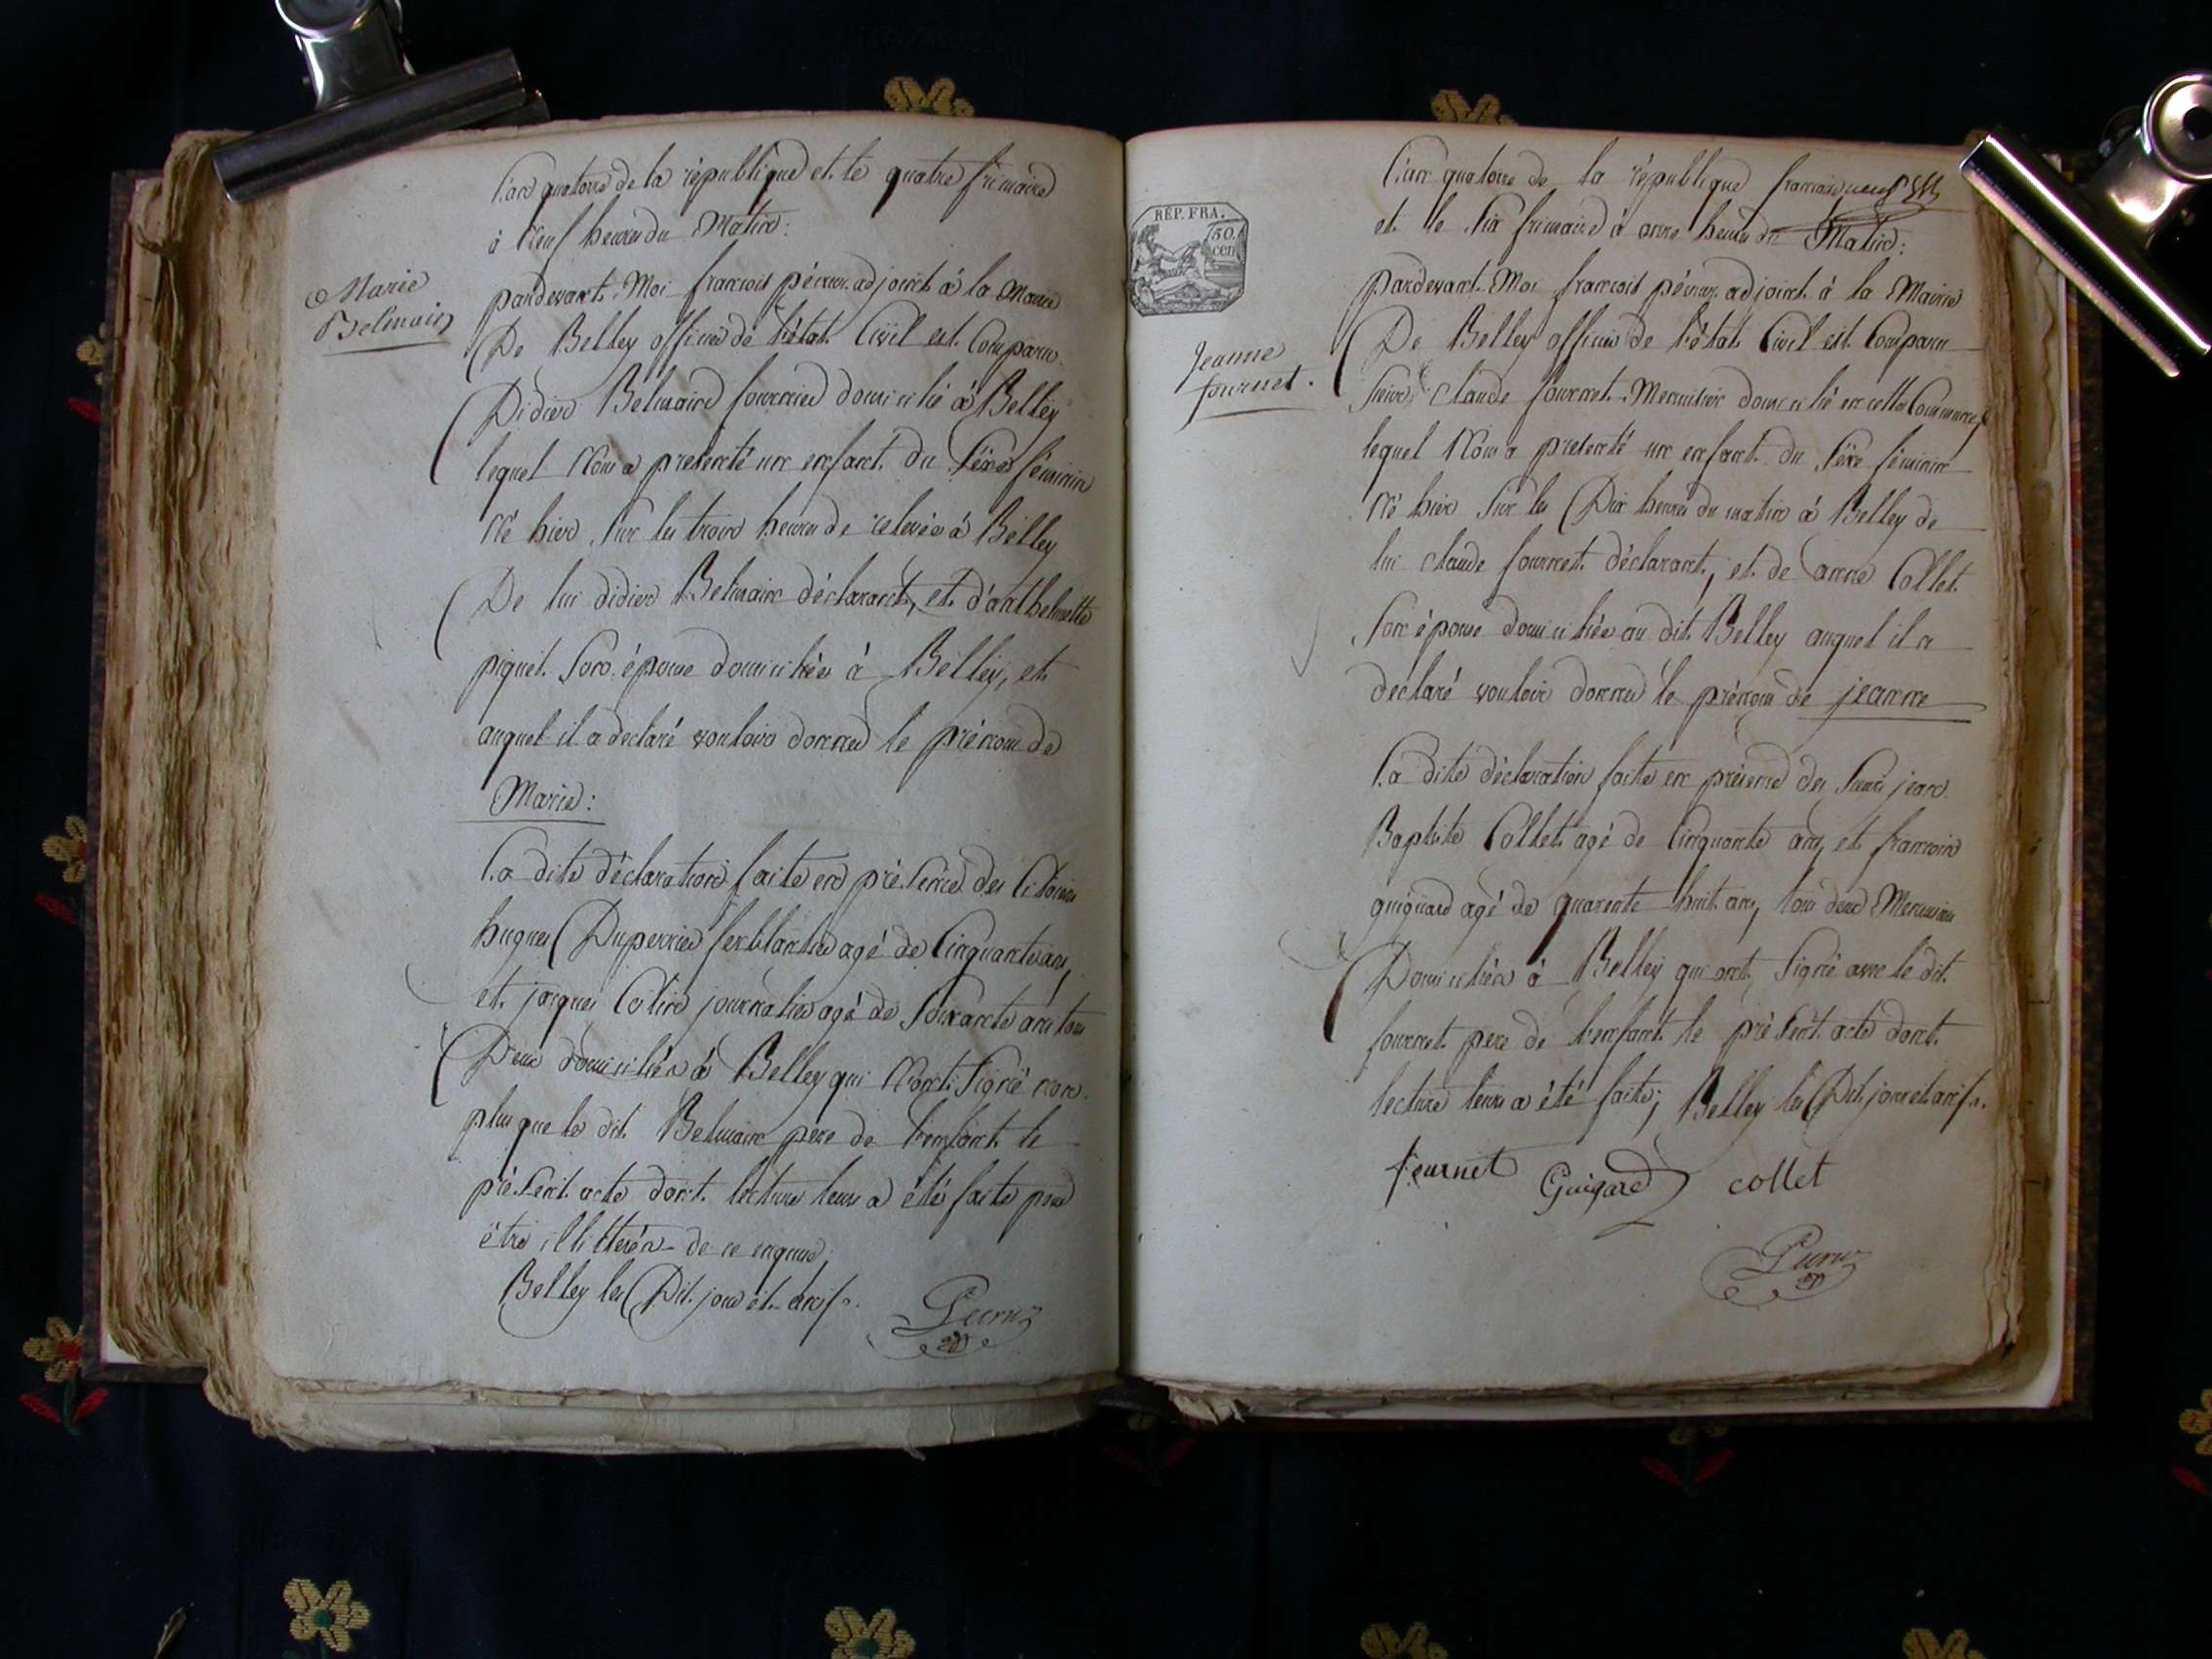 Marie
Belmain
L'an quatorze de la république et le quatre frimaire
à Neuf heures du Matin:
pardevant Moi françois adjoint à la Mairie
De Belley officier de l'état Civil est Comparu
Didier Belmain fournier domicilié à Belley
lequel Nous a presenté un enfant du Séxe féminin
Né hier Sur les trois heures de relevée à Belley
De lui didier Belmain déclarant, et d'anthelmette
piquet Son épouse domiciliés à Belley, et
auquel il a declaré vouloir donner le prénom de
Marie:
La dite déclaration faite en présence des Citoiens
hugues Duperrier ferblantier agé de Cinquante ans,
et jacques Colin journalier agé de Soixante ans tous
Deux domiciliés à Belley qui N'ont Signé non
plus que le dit Belmain pere de l'enfant le
présent acte dont lecture leurs a été faite pour
être illitterés de ce enquis;
Belley les Dit jour et an
REP. FRA.
50
cen
Jeanne
fournet.
L'an quatorze de la république francaise
et le Six frimaire à onze heures du Matin:
pardevant Moi françois adjoint à la Mairie
De Belley officier de l'état Civil est Comparu
Sieur Claude fournet Menuisier domicilié en cette Commune
lequel Nous a presenté un enfant du Séxe féminin
Né hier Sur les Dix heures du matin à Belley de
lui claude fournet déclarant, et de anne Collet
Son épouse domiciliés au dit Belley auquel il a
declaré vouloir donner le prénom de jeanne
La dite déclaration faite en présence des Sieurs jean
Baptiste Collet agé de Cinquante ans, et françois
guiguard agé de quarante huit ans, tous deux Menuisiers
Domiciliés à Belley qui ont Signé avec le dit
fournet pere de l'enfant le présent acte dont
lecture leurs a été faite; Belley les Dit jour et an
fournet Guigard collet